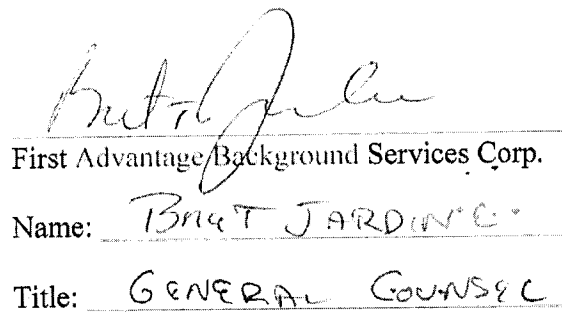 First Advantage Background Services Corp.
Name: BRET JARDINE
Title: GENERAL COUNSEL